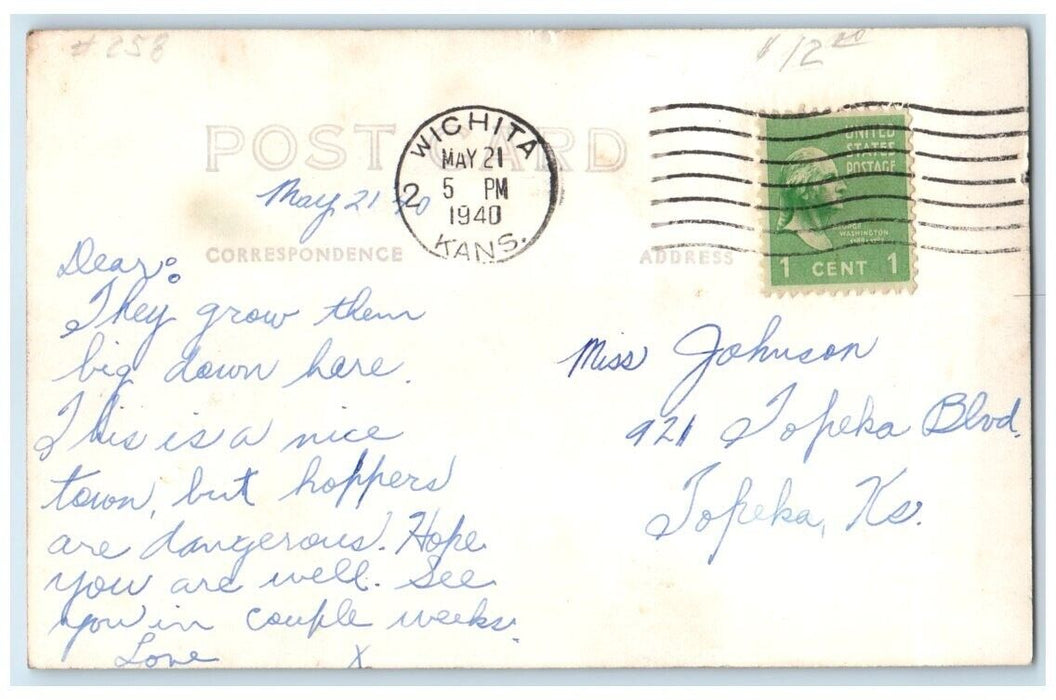 # 258
$12 00
POST CARD
WICHITA
MAY 21
2 5 PM
1940
KANS.
UNITED
STATES
POSTAGE
WASHINGTON
1 CENT 1
May 21 40
CORRESPONDENCE
ADDRESS
Dear:
They grow them
big down hare.
This is a nice
town, but hoppers
are dangerous. Hope
you are well. See
you in couple weeks.
Love X
Miss Johnson
921 Topeka Blvd.
Topeka, Ks.